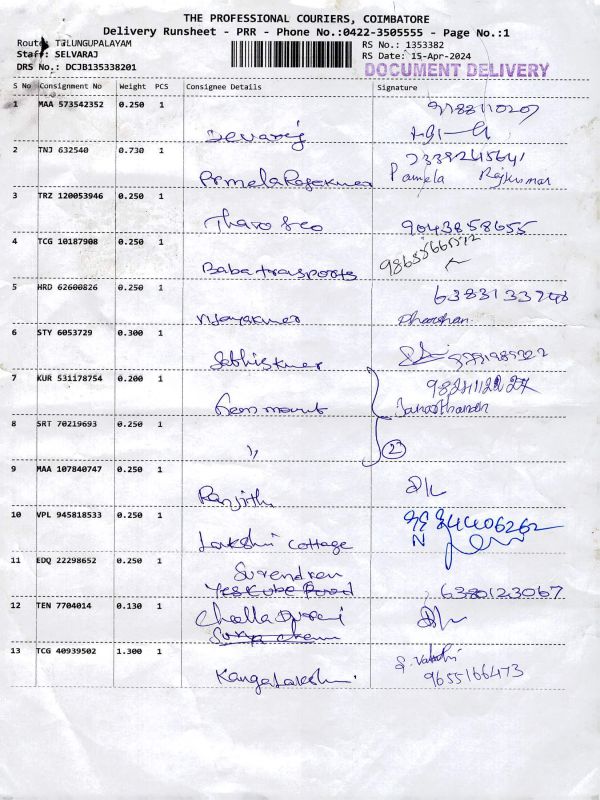 THE PROFESSIONAL COURIERS, COIMBATORE
Delivery Runsheet - PRR - Phone No.:0422-3505555 - Page No.:1
Route: TELUNGUPALAYAM
RS No.: 1353382
Staff: SELVARAJ
RS Date: 15-Apr-2024
DRS No.: DCJB135338201
DOCUMENT DELIVERY
S No Consignment No Weight PCS Consignee Details Signature
1 MAA 573542352 0.250 1
Devaraj
2 TNJ 632540 0.730 1
Pamela Rajkumar
3 TRZ 120053946 0.250 1
Tharo & co 9043858655
4 TCG 10187908 0.250 1
Baba trasports
5 HRD 62600826 0.250 1
Vijayakumar
6 STY 6053729 0.300 1
7 KUR 531178754 0.200 1
Janarthanan
8 SRT 70219693 0.250 1
,, 2
9 MAA 107840747 0.250 1
Ranjith
10 VPL 945818533 0.250 1
Lakshmi Cottage
11 EDQ 22298652 0.250 1
Surendren
6380123067
12 TEN 7704014 0.130 1
Chelladurai
13 TCG 40939502 1.300 1
9655166473